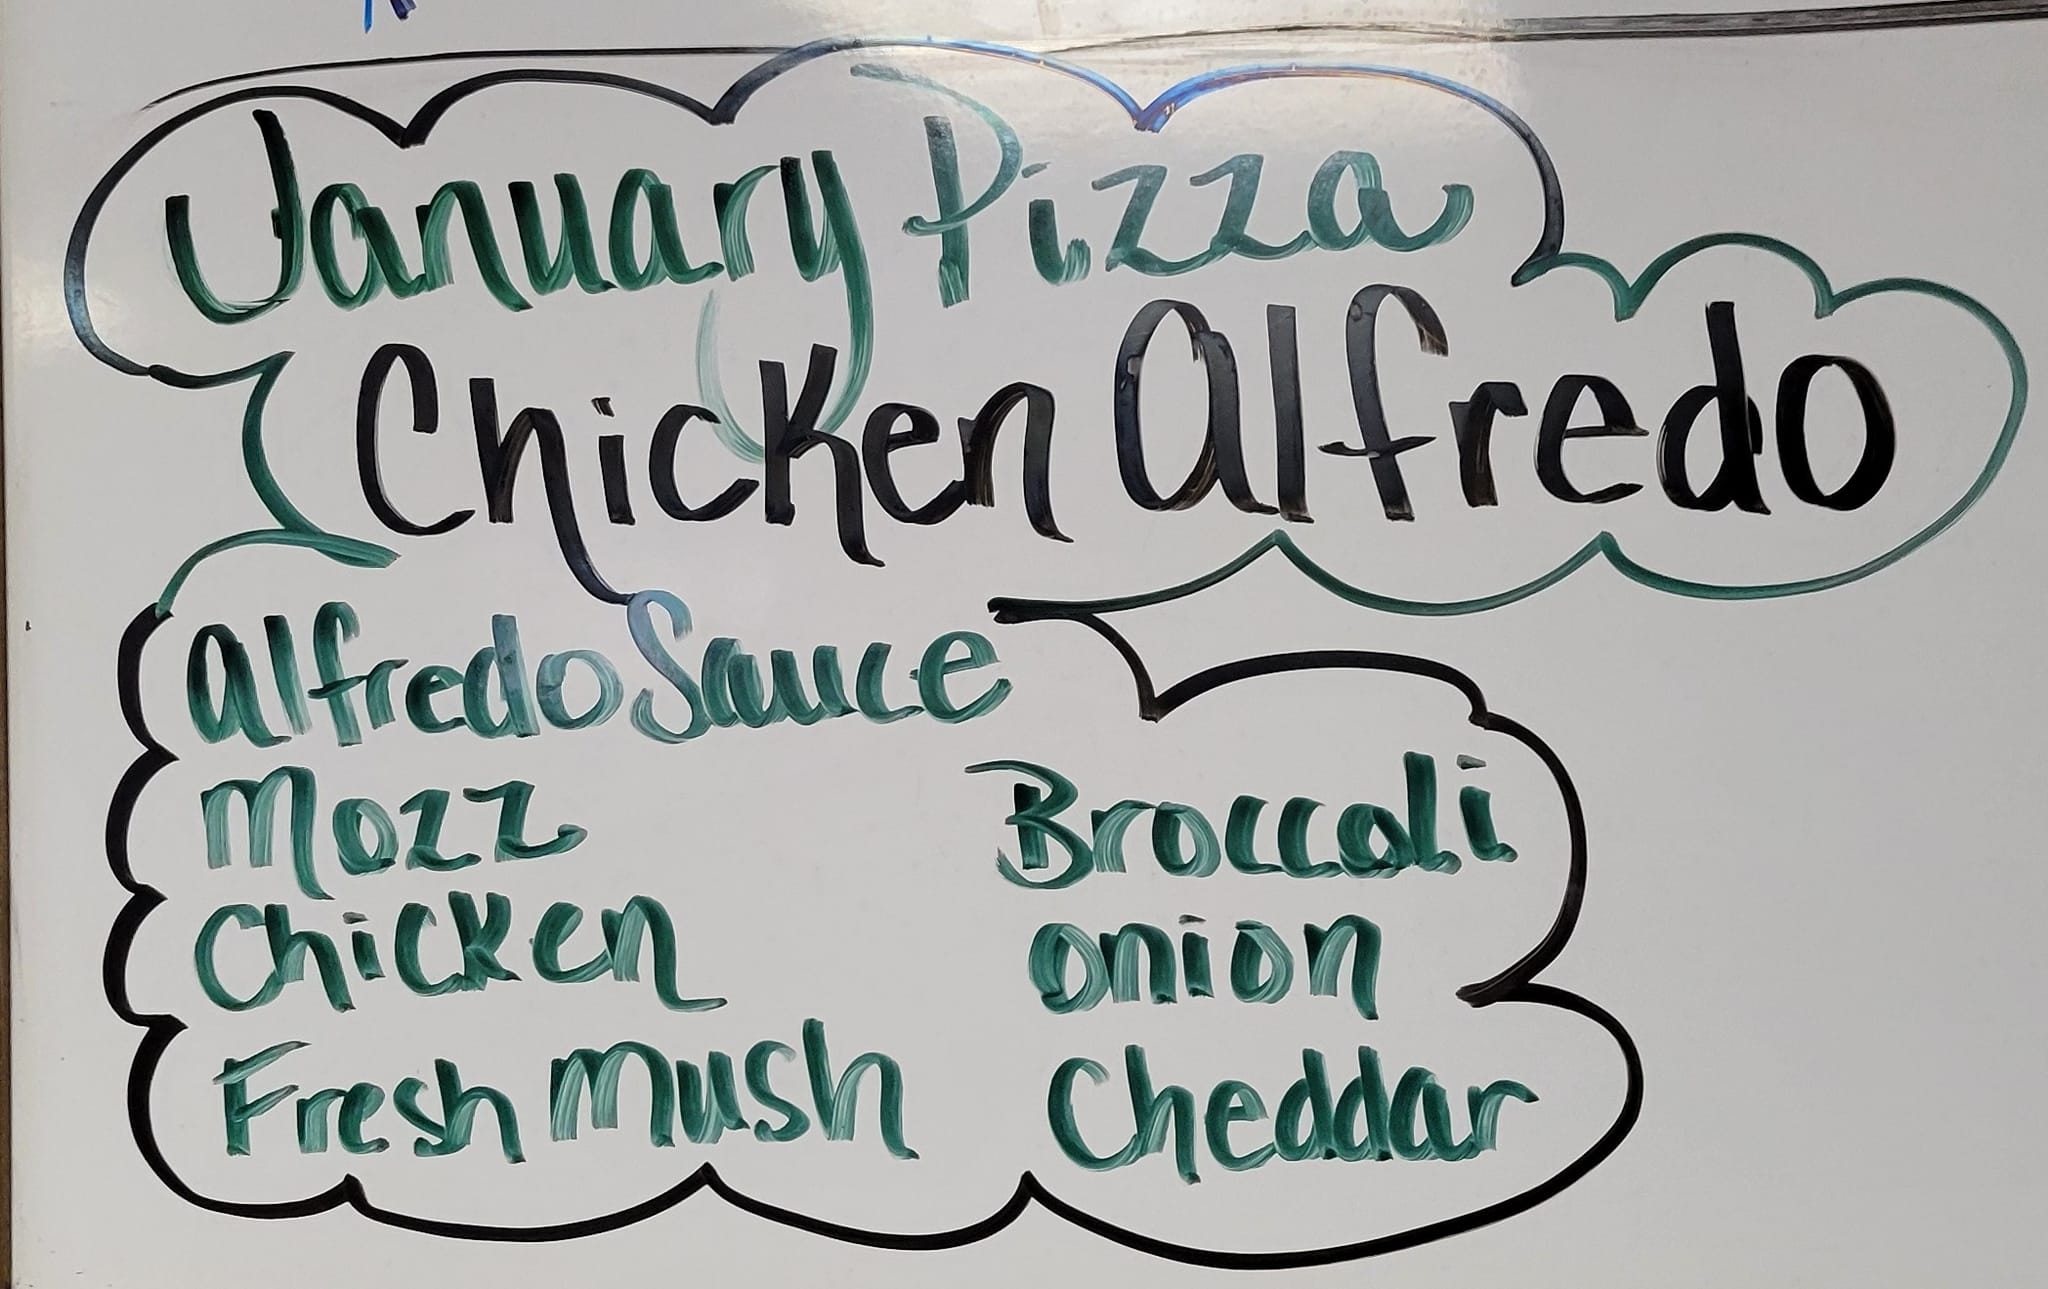 January Pizza
Chicken Alfredo
Alfredo Sauce
Mozz
Chicken
Fresh Mush
Broccoli
onion
Cheddar